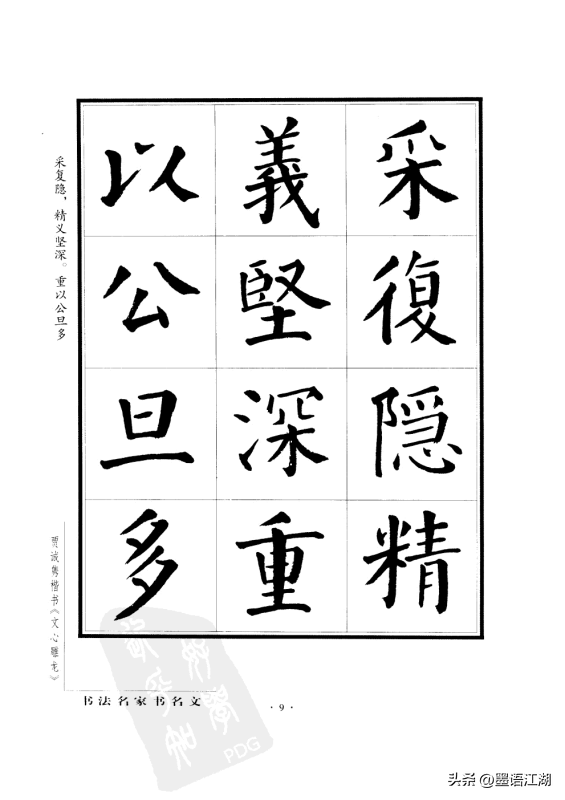 采復隐精
義堅深重
以公旦多
采复隐，精义坚深。重以公旦多
贾诚隽楷书《文心雕龙》
书法名家书名文
· 9 ·
PDG
头条@墨语江湖